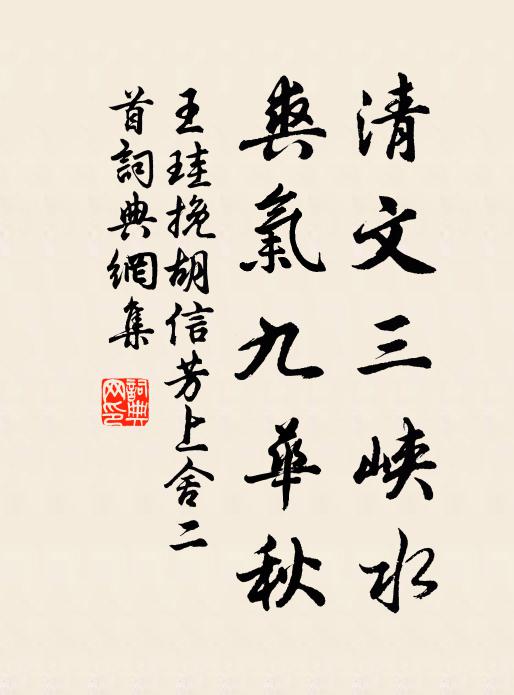 清文三峽水
爽氣九華秋
王珪挽胡信芳上舍二
首詞典網集
詞典網印